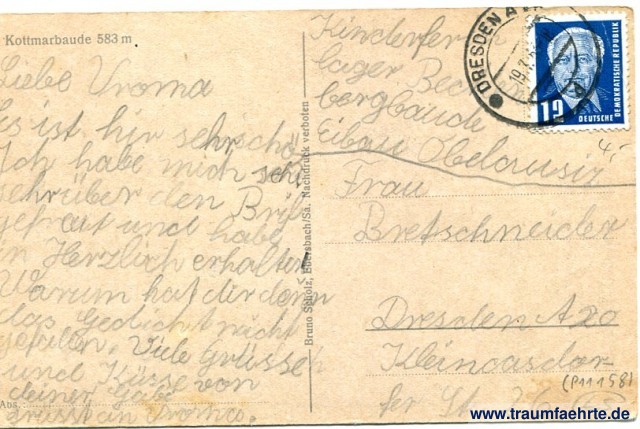 Kottmarbaude 583 m
Liebe Uroma
Es ist hir sehr schö
Ich habe mich sehr
sehr über den Brif
gefräut und habe
in Herzlich erhalten
Warum hat dir denn
das Gedicht nicht
gefallen, Viele Grüsse
und Küsse von
deiner Gabi
Abs.:
Bruno Scholz, Ebersbach/Sa. Nachdruck verboten
Kinderferien
lager
bergbaude
Eibau Oberlausiz
Frau
Bretschneider
Dresden A20
Kleinnaundor
fer St. 26
DRESDEN A
19.7.
12
DEUTSCHE
DEMOKRATISCHE REPUBLIK
4,-
(P11158)
www.traumfaehrte.de